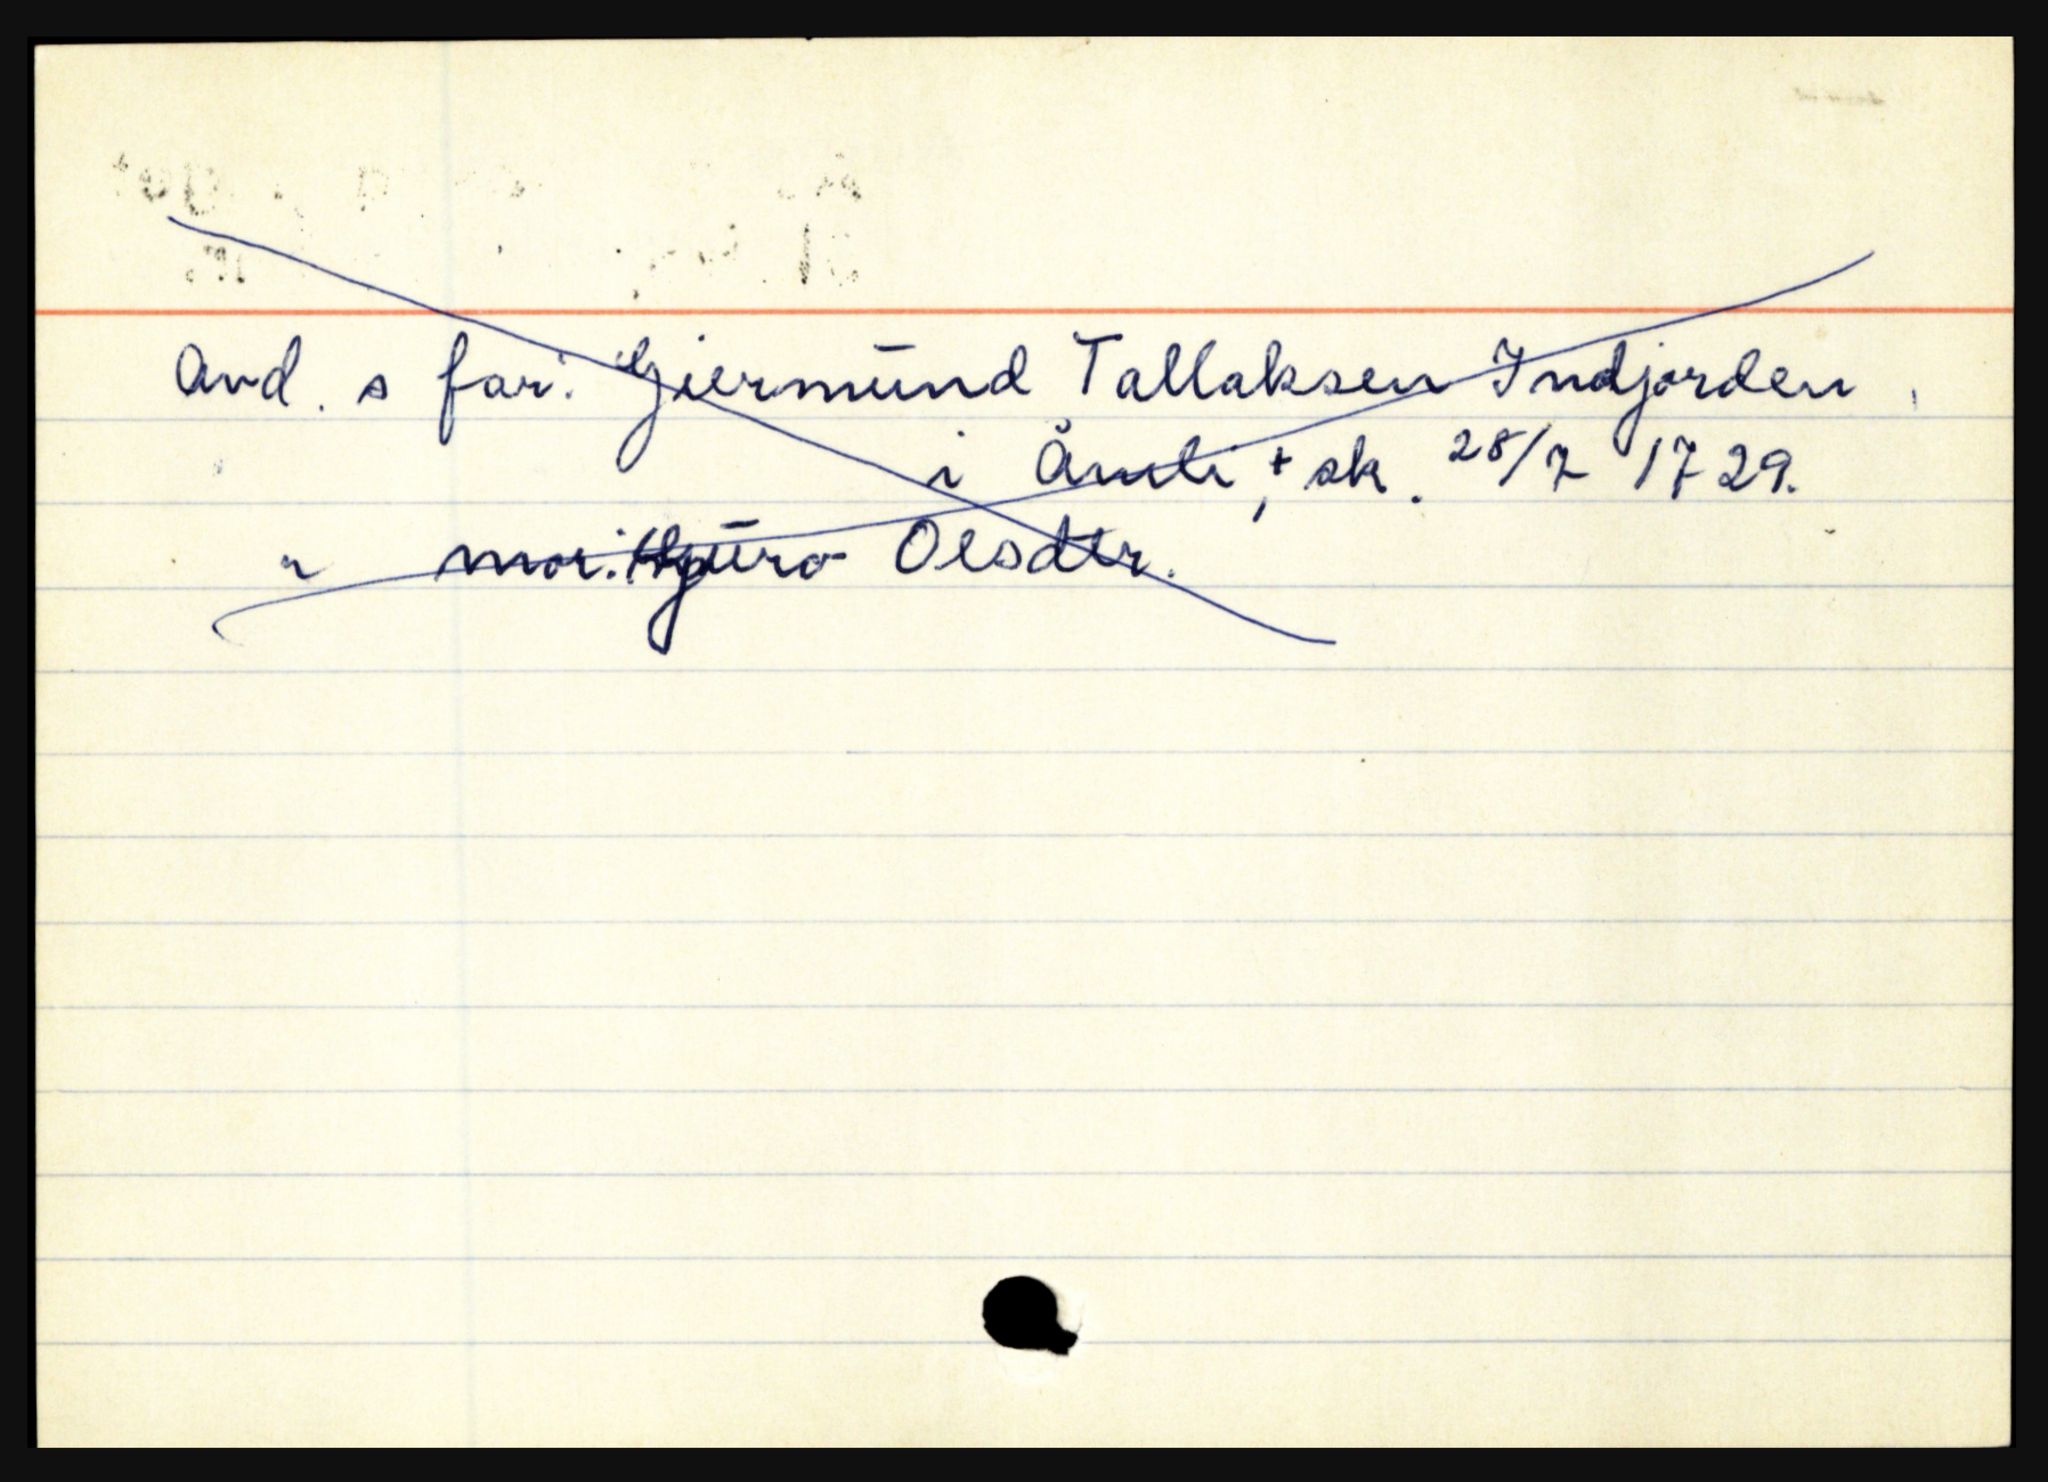 Avd. s far: Gjermund Tallaksen Indjorden,
i Åmli, + sk. 28/7 1729.
" mor: Gjuro Olsdtr.